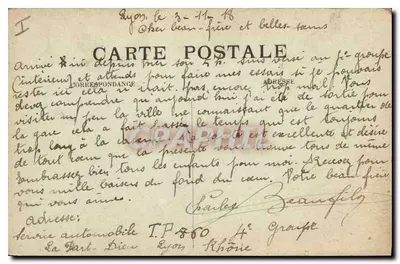 I
Lyon, le 3-11-18
Cher beau-frère et belles sœurs
CARTE POSTALE
CORRESPONDANCE
ADRESSE
Arrivé ici depuis hier soir 5 h. Suis versé au 1e groupe
(intérieur) et attends pour faire mes essais si je pouvais
rester ici cela n'irait pas encore trop mal. Vous
devez comprendre qu'aujourd'hui j'ai été de sortie pour
visiter un peu la ville ne connaissant que le quartier de
la gare cela a fait passer le temps qui est toujours
trop long à la caserne. Santé excellente et désire
de tout cœur que la présente vous trouve tous de même
Embrassez bien tous les enfants pour moi. Recevez pour
vous mille baisers du fond du cœur. Votre beau frère
qui vous aime.
Charles Beaufils
Adresse:
Service automobile T.P. 860 4e Groupe
La Part-Dieu Lyon Rhône
CPARAMA